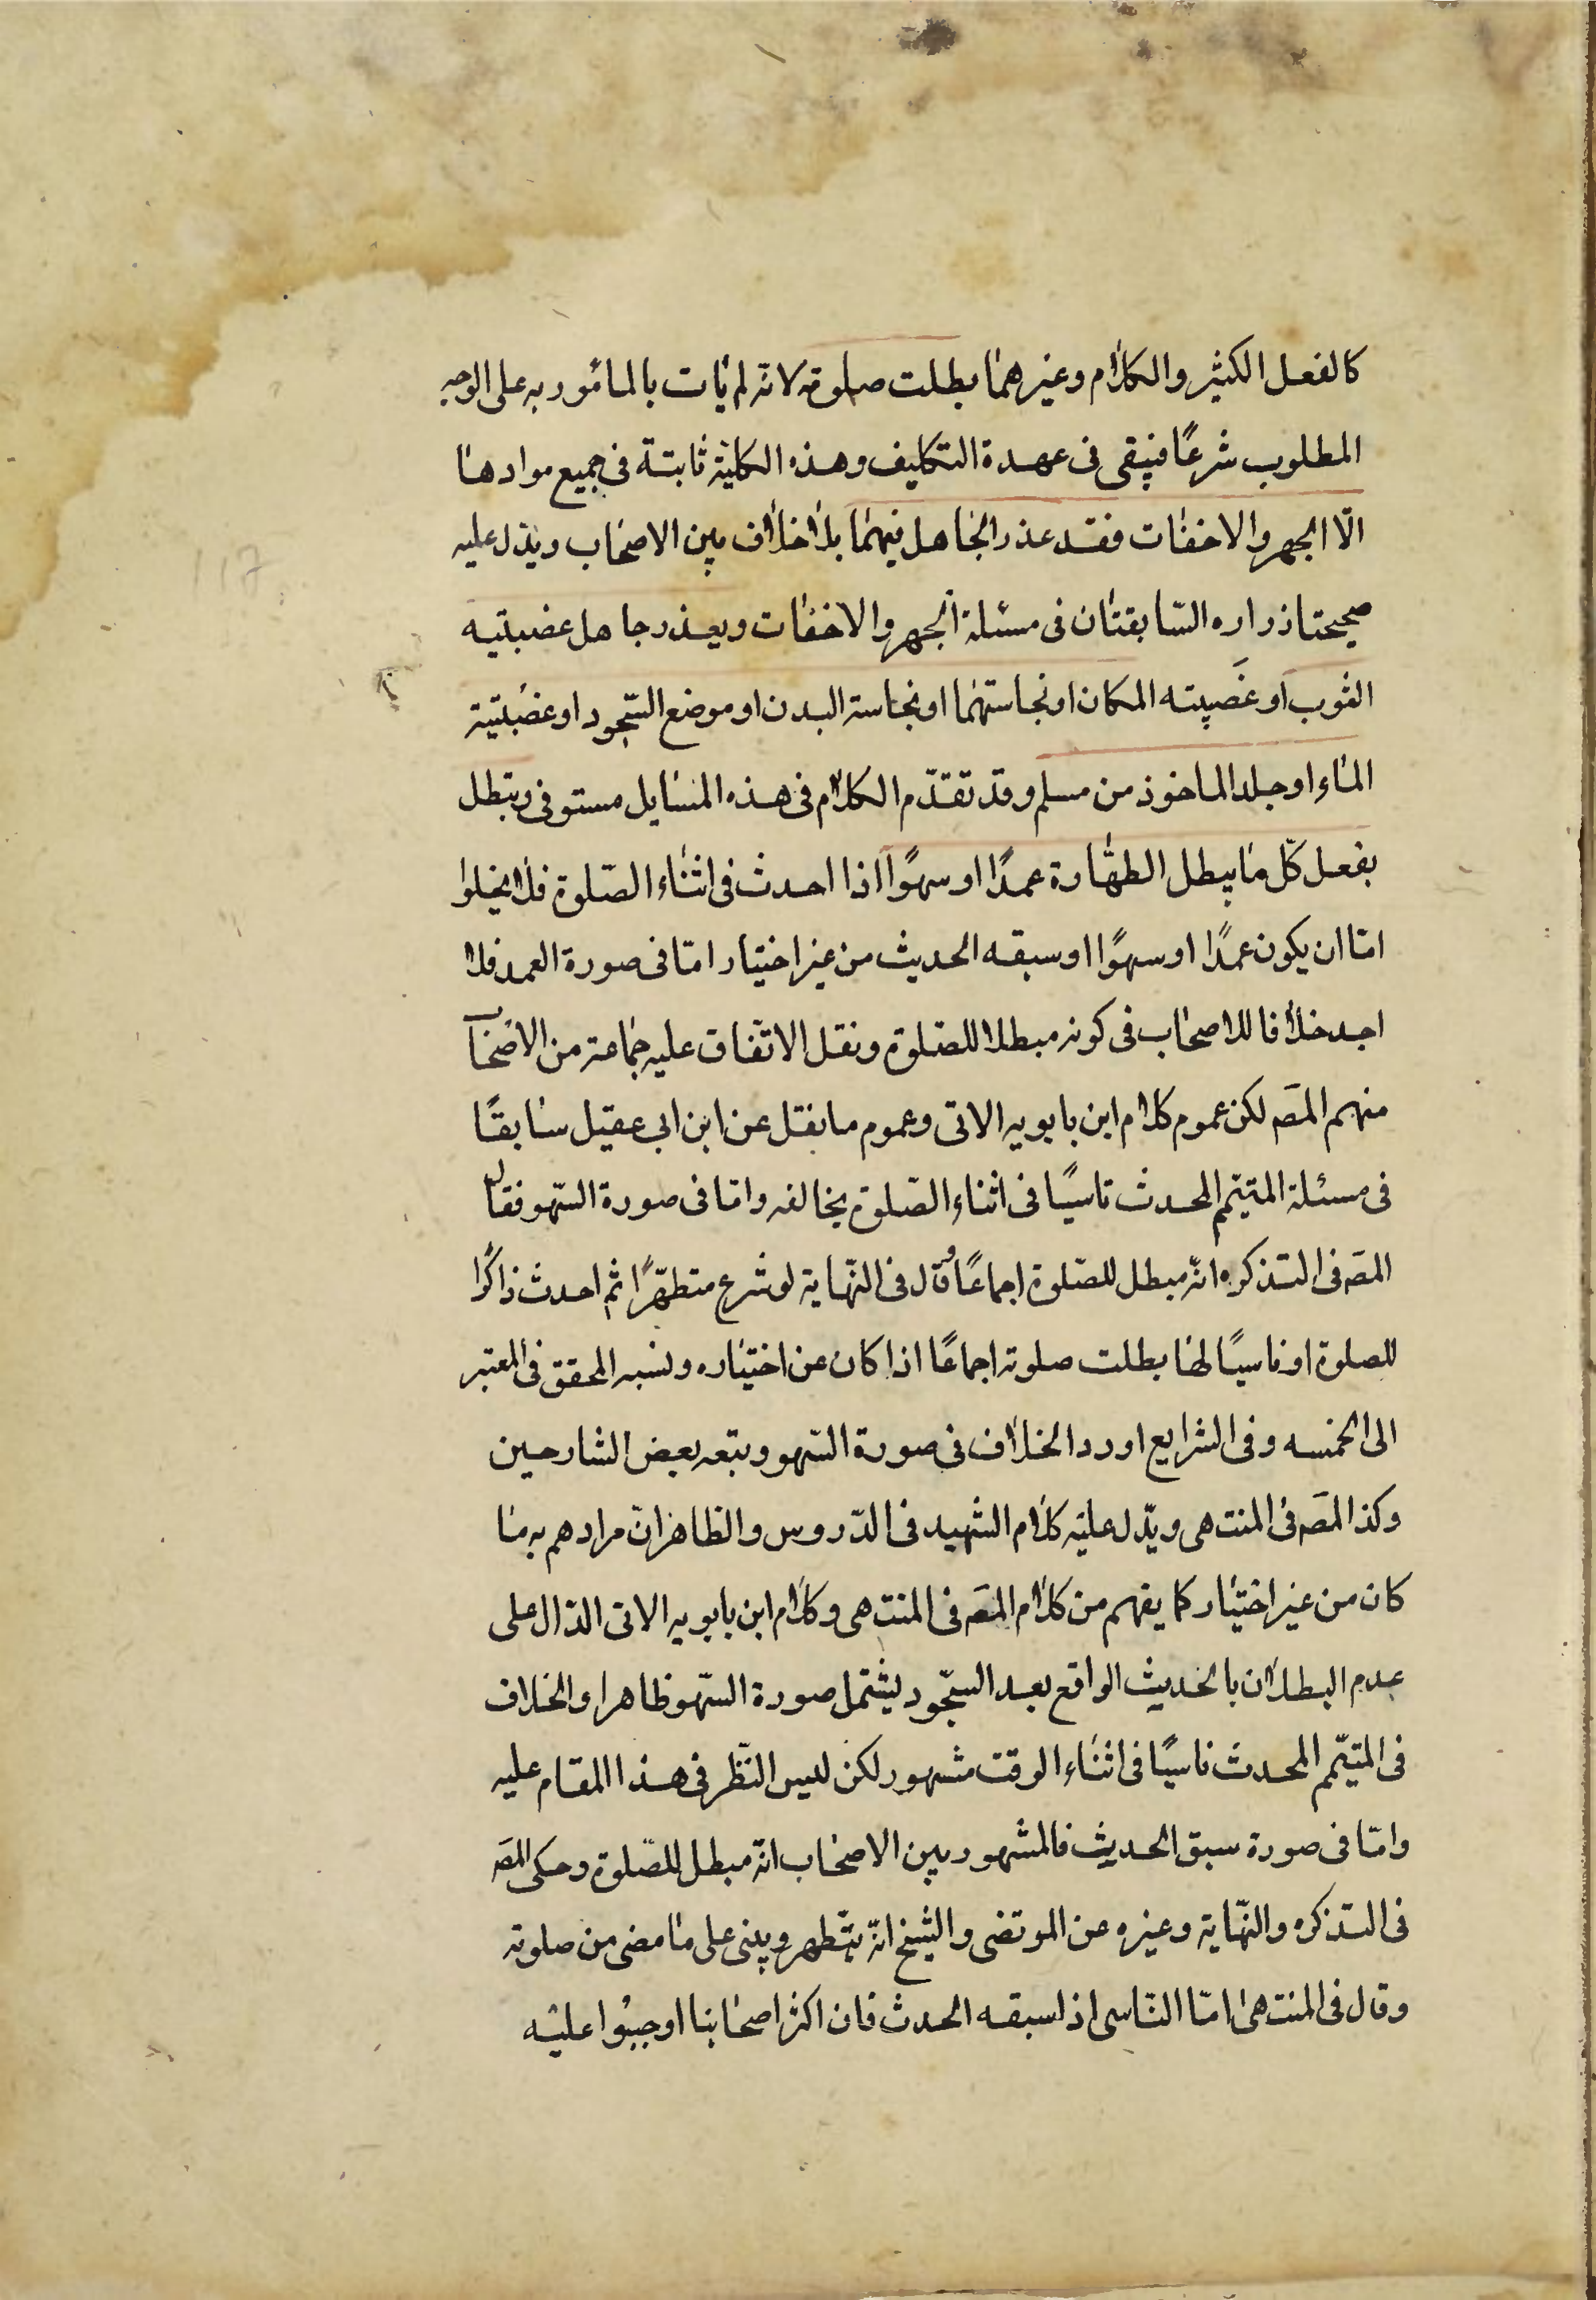 كالفعل الكثير والكلام وغيرهما بطلت صلوته لانه لم يأت بالمأمور به على الوجه
المطلوب شرعًا فيبقى فى عهدة التكليف وهذه الكلية ثابتة فى جميع موادها
الّا الجهر والاخفات فقد عذر الجاهل فيهما بلا خلاف بين الاصحاب ويدّل عليه
صحيحتا زراره السّابقتان فى مسئلة الجهر والاخفات ويعذر جاهل غصبيته
الثوب او غصبيته المكان او نجاستهما او نجاسة البدن او موضع السّجود او غصبيّة
الماء او جلد الماخوذ من مسلم وقد تقدّم الكلام فى هذه المسايل مستوفى وتبطل
بفعل كلّ ما يبطل الطهارة عمدًا او سهوًا اذا احدث فى اثناء الصّلوة فلا يخلوا
امّا ان يكون عمدًا او سهوًا او سبقه الحديث من غير اختيار امّا فى صورة العمد فلا
اجد خلافا للاصحاب فى كونه مبطلا للصّلوة ونقل الاتّفاق عليه جماعة من الاصحاب
منهم المصَ لكن عموم كلام ابن بابويه الاتى وعموم ما نقل عن ابن ابى عقيل سابقًا
فى مسئلة المتيمّم المحدث ناسيًا فى اثناء الصّلوة يخالفه وامّا فى صورة السّهو فقال
المصَ فى التذكره انّه مبطل للصّلوة اجماعًا وقال فى النّهاية لو شرع متطهّرًا ثم احدث ذاكرًا
للصلوة او ناسيًا لها بطلت صلوته اجماعًا اذا كان عن اختياره ونسبه المحقق فى المعتبر
الى الخمسه وفى الشرايع اورد الخلاف فى صورة السّهو وتبعه بعض الشارحين
وكذا المصَ فى المنتهى ويدّل عليه كلام الشهيد فى الدّروس والظاهر انّ مرادهم به ما
كان من غير اختيار كما يفهم من كلام المصَ فى المنتهى وكلام ابن بابويه الاتى الدّال على
عدم البطلان بالحديث الواقع بعد السّجود يشتمل صورة السّهو ظاهرا والخلاف
فى المتيمّم المحدث ناسيًا فى اثناء الوقت مشهور لكن ليس النّظر فى هذا المقام عليه
وامّا فى صورة سبق الحديث فالمشهور بين الاصحاب انّه مبطل للصّلوة وحكى المصَ
فى التذكره والنّهاية وغيره عن المرتضى والشّيخ انّه يتطهر ويبنى على ما مضى من صلوته
وقال فى المنتهى امّا النّاسى اذا سبقه الحدث فان اكثر اصحابنا اوجبوا عليه